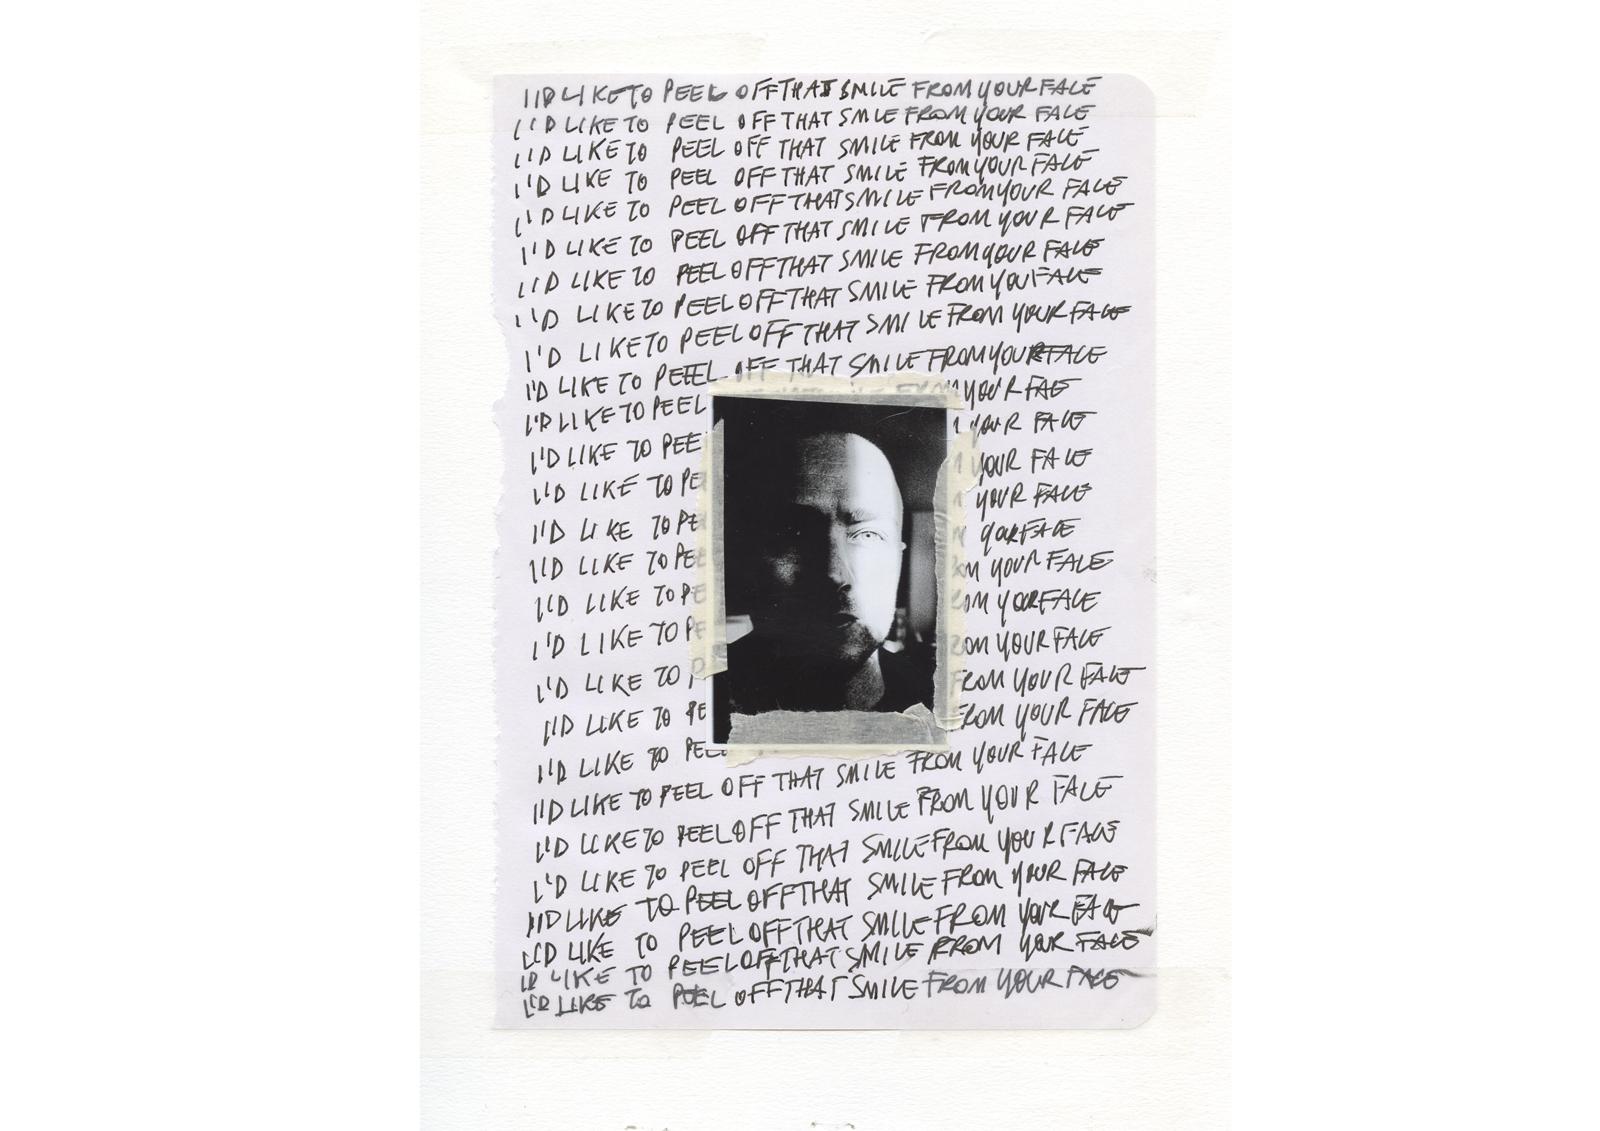 I'D LIKE TO PEEL OFF THAT SMILE FROM YOUR FACE
I'D LIKE TO PEEL OFF THAT SMLE FROM YOUR FACE
I'D LIKE TO PEEL OFF THAT SMILE FROM YOUR FACE
I'D LIKE TO PEEL OFF THAT SMILE FROM YOUR FACE
I'D LIKE TO PEEL OFF THAT SMILE FROM YOUR FACE
I'D LIKE TO PEEL OFF THAT SMILE FROM YOUR FACE
I'D LIKE TO PEEL OFF THAT SMILE FROM YOUR FACE
I'D LIKE TO PEEL OFF THAT SMILE FROM YOU FACE
I'D LIKE TO PEEL OFF THAT SMILE FROM YOUR FACE
I'D LIKE TO PEEEL OFF THAT SMILE FROM YOUR FACE
I'D LIKE TO PEEL FROM YOUR FACE
I'D LIKE TO PEE YOUR FACE
I'D LIKE TO PE YOUR FACE
I'D LIKE TO PE YOUR FACE
I'D LIKE TO PE YOUR FACE
I'D LIKE TO PE OM YOUR FACE
I'D LIKE TO PE ROM YOUR FACE
I'D LIKE TO P ROM YOUR FACE
I'D LIKE TO PE FROM YOUR FACE
I'D LIKE TO PEEL FROM YOUR FACE
I'D LIKE TO PEEL OFF THAT SMILE FROM YOUR FACE
I'D LIKE TO PEEL OFF THAT SMILE FROM YOUR FACE
I'D LIKE TO PEEL OFF THAT SMILE FROM YOUR FACE
I'D LIKE TO PEEL OFF THAT SMILE FROM YOUR FACE
I'D LIKE TO PEEL OFF THAT SMILE FROM YOUR FACE
I'D LIKE TO PEEL OFF THAT SMILE FROM YOUR FACE
I'D LIKE TO PEEL OFF THAT SMILE FROM YOUR FACE